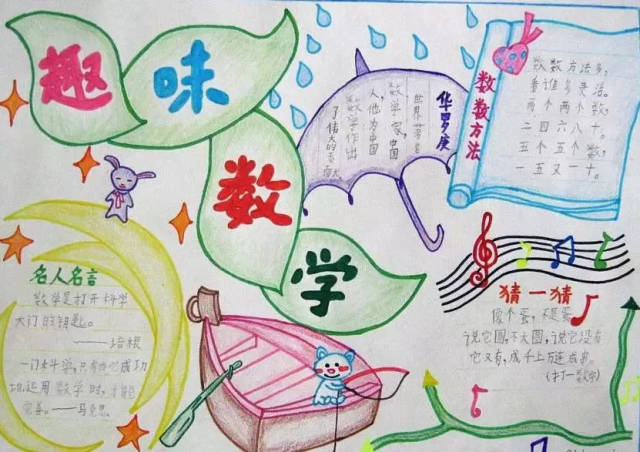 趣味数学
华罗庚
世界著名
数学家,中国
人,他为中国
数学作出
了伟大的
数数方法
数数方法多,
看谁多灵活。
两个两个数,
二四六八十。
五个五个数,
一五又一十。
名人名言
数学是打开科学
大门的钥匙。
——培根
一门科学,只有当它成功
地运用数学时,才能
完善。——马克思
猜一猜
像个蛋,不是蛋
说它圆,不太圆,说它没有
它又有,成千上万连成串。
(打一数字)